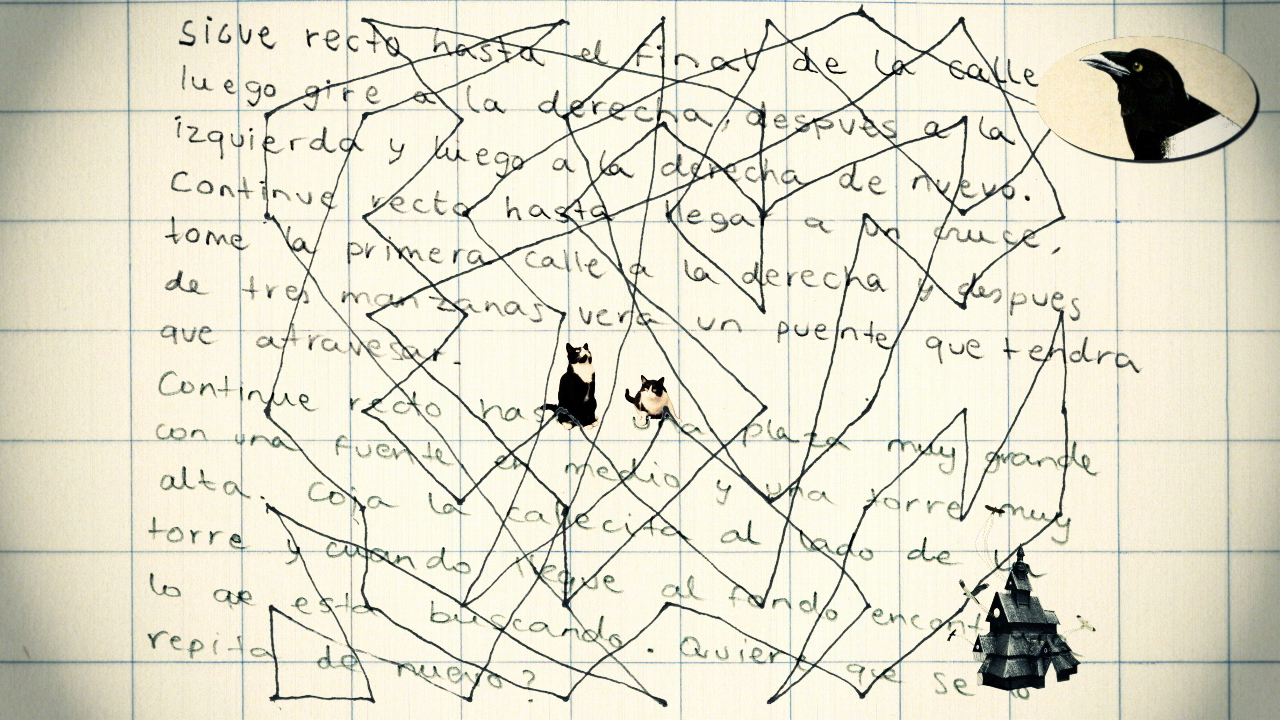 sigue recto hasta el final de la calle
luego gire a la derecha, despues a la
izquierda y luego a la derecha de nuevo.
Continue recto hasta llegar a un cruce,
tome la primera calle a la derecha y despues
de tres manzanas verá un puente que tendra
que atravesar.
Continue recto una plaza muy grande
con una fuente en medio y una torre muy
alta. Coja la callecita al lado de la
torre y cuando llegue al fondo
lo que esta buscando. Quiere que se lo
repita de nuevo?